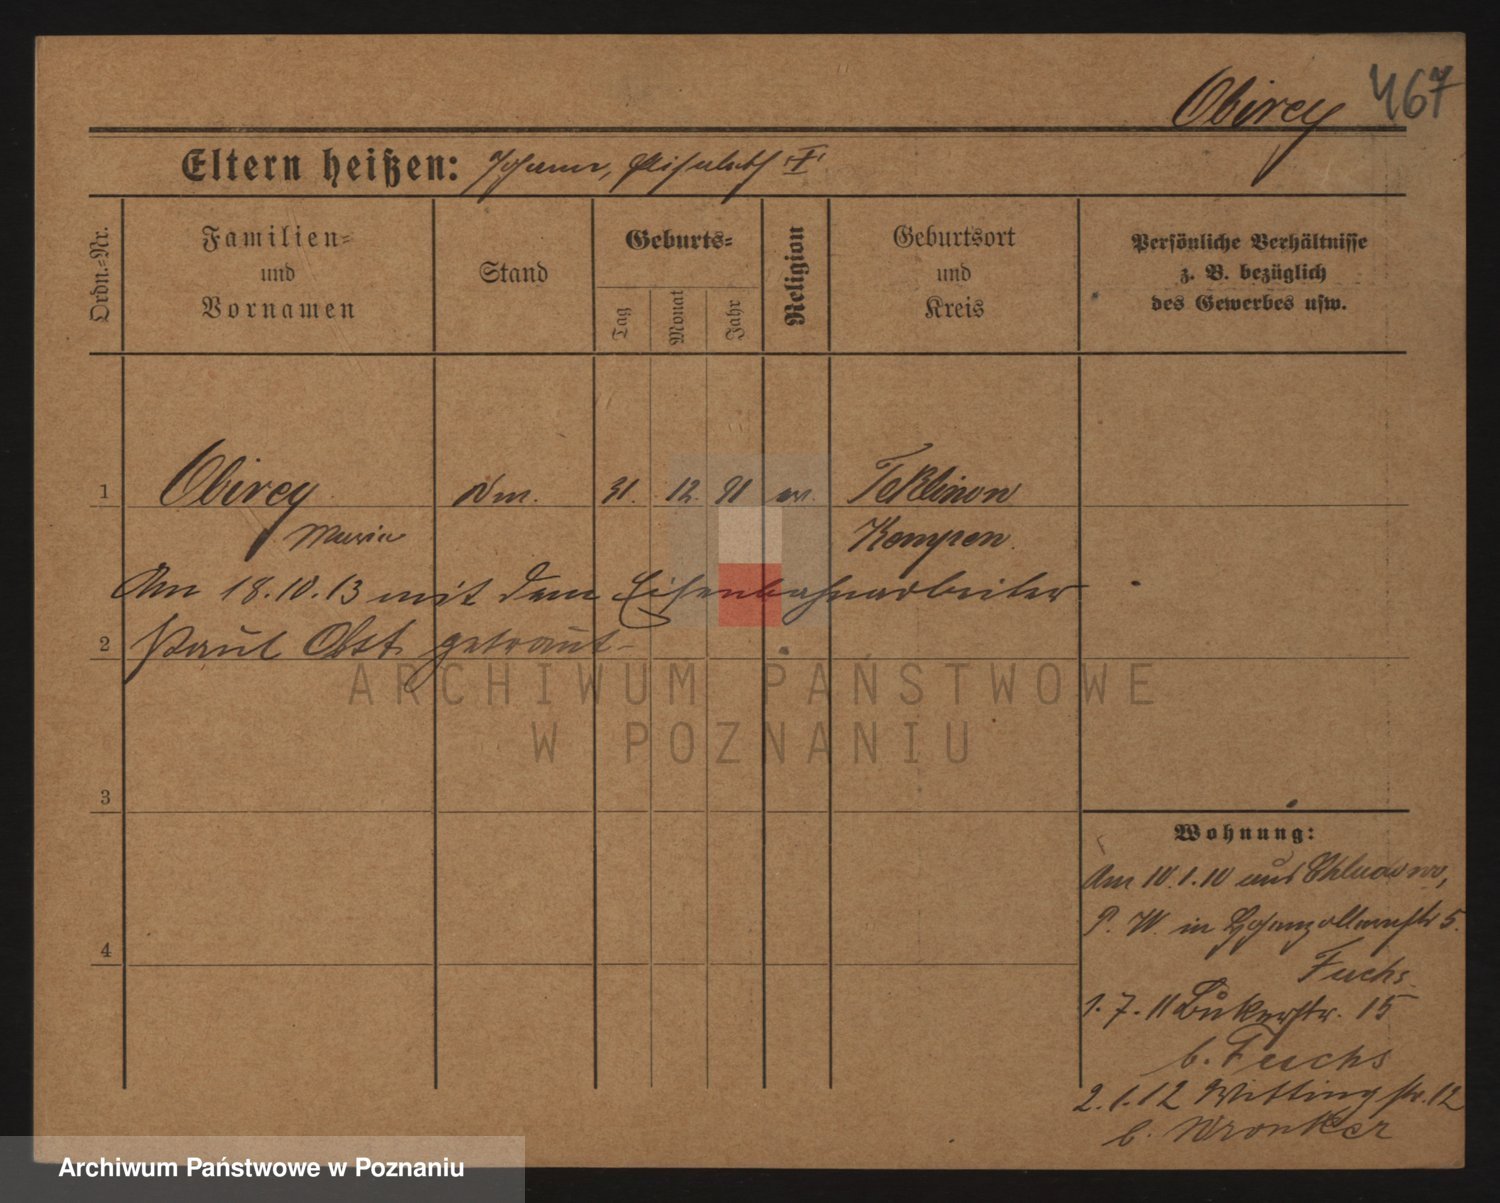 Obirey 467
Eltern heißen: Johann, Elisabeth
Ordn.-Nr.
Familien-
und
Vornamen
Stand
Geburts-
Tag
Monat
Jahr
Religion
Geburtsort
und
Kreis
Persönliche Verhältnisse
z. B. bezüglich
des Gewerbes usw.
1 Obirey 31. 12. 91 Teklinow
Maria Kempen
Am 18.10.13 mit dem Eisenbahnarbeiter
2 Paul Obst getraut
3
4
Wohnung:
Am 10.1.10 aus Chludowo,
P. W. in Hohenzollernstr 5.
Fuchs
1.7.11 Bukerstr. 15
b. Fuchs
2.1.12 Wittingstr. 12
b. Wronker
ARCHIWUM PAŃSTWOWE
W POZNANIU
Archiwum Państwowe w Poznaniu